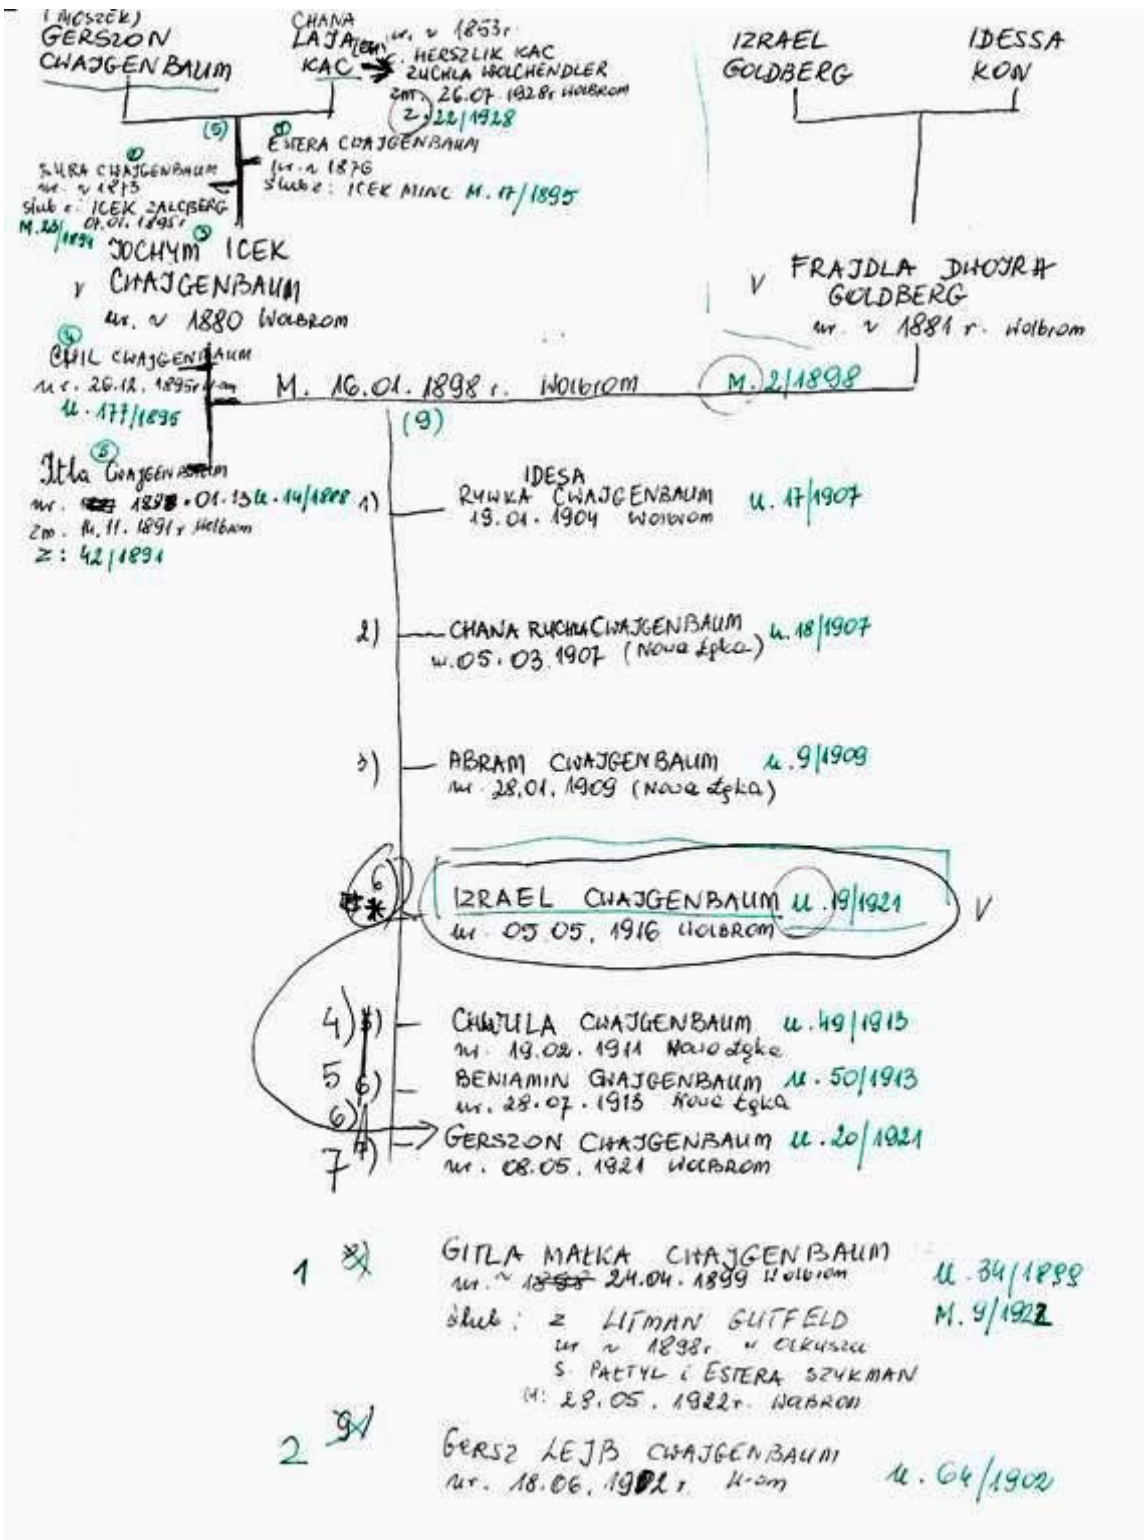 (MOSZEK)
GERSZON
CWAJGENBAUM
CHANA
LAJA ur. ~ 1853r.
KAC
HERSZLIK KAC
ZUCHLA WOLCHENDLER
zm. 26.07.1928r Wolbrom
Z. 22/1928
IZRAEL
GOLDBERG
IDESSA
KON
(5)
1
ESTERA CWAJGENBAUM
ur. ~ 1876
ślub z: ICEK MINC M. 17/1895
SURA CWAJGENBAUM
ur. ~ 1873
ślub z: ICEK ZALCBERG
07.01.1895r
M. 23/1894
3
JOCHYM ICEK
V CWAJGENBAUM
ur. ~ 1880 Wolbrom
V FRAJDLA DWOJRA
GOLDBERG
ur. ~ 1881 r. Wolbrom
4
CHIL CWAJGENBAUM
ur. 26.12.1895r
U. 177/1895
M. 16.01.1898 r. Wolbrom M. 2/1898
(9)
5
Itla CWAJGENBAUM
ur. 1888.01.13 U. 14/1888
zm. 14.11.1891 r Wolbrom
Z: 42/1891
1) IDESA
RYWKA CWAJGENBAUM U. 17/1907
19.01.1904 Wolbrom
2) CHANA RUCHLA CWAJGENBAUM U. 18/1907
ur. 05.03.1907 (Nowa Łąka)
3) ABRAM CWAJGENBAUM U. 9/1909
ur. 28.01.1909 (Nowa Łąka)
6) * IZRAEL CWAJGENBAUM U. 19/1921 V
ur. 05.05.1916 WOLBROM
4) CWAJGENBAUM U. 49/1913
ur. 19.02.1911 Nowa Łąka
5 6) BENIAMIN CWAJGENBAUM U. 50/1913
ur. 28.07.1913 Nowa Łąka
6)
7 7) GERSZON CWAJGENBAUM U. 20/1921
ur. 08.05.1921 WOLBROM
1 8) GITLA MAŁKA CWAJGENBAUM
ur. ~ 1898 24.04.1899 Wolbrom U. 34/1899
ślub: z LITMAN GUTFELD M. 9/1922
ur ~ 1898r. w OLKUSZU
S. PAŁTYL i ESTERA SZYKMAN
M: 28.05.1922r. WOLBROM
2 9) GERSZ LEJB CWAJGENBAUM
ur. 18.06.1902 r. W-om U. 64/1902